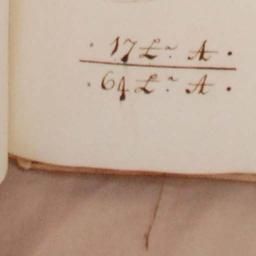 · 17 L.ᵃ A ·
· 64 L.ᵃ A ·